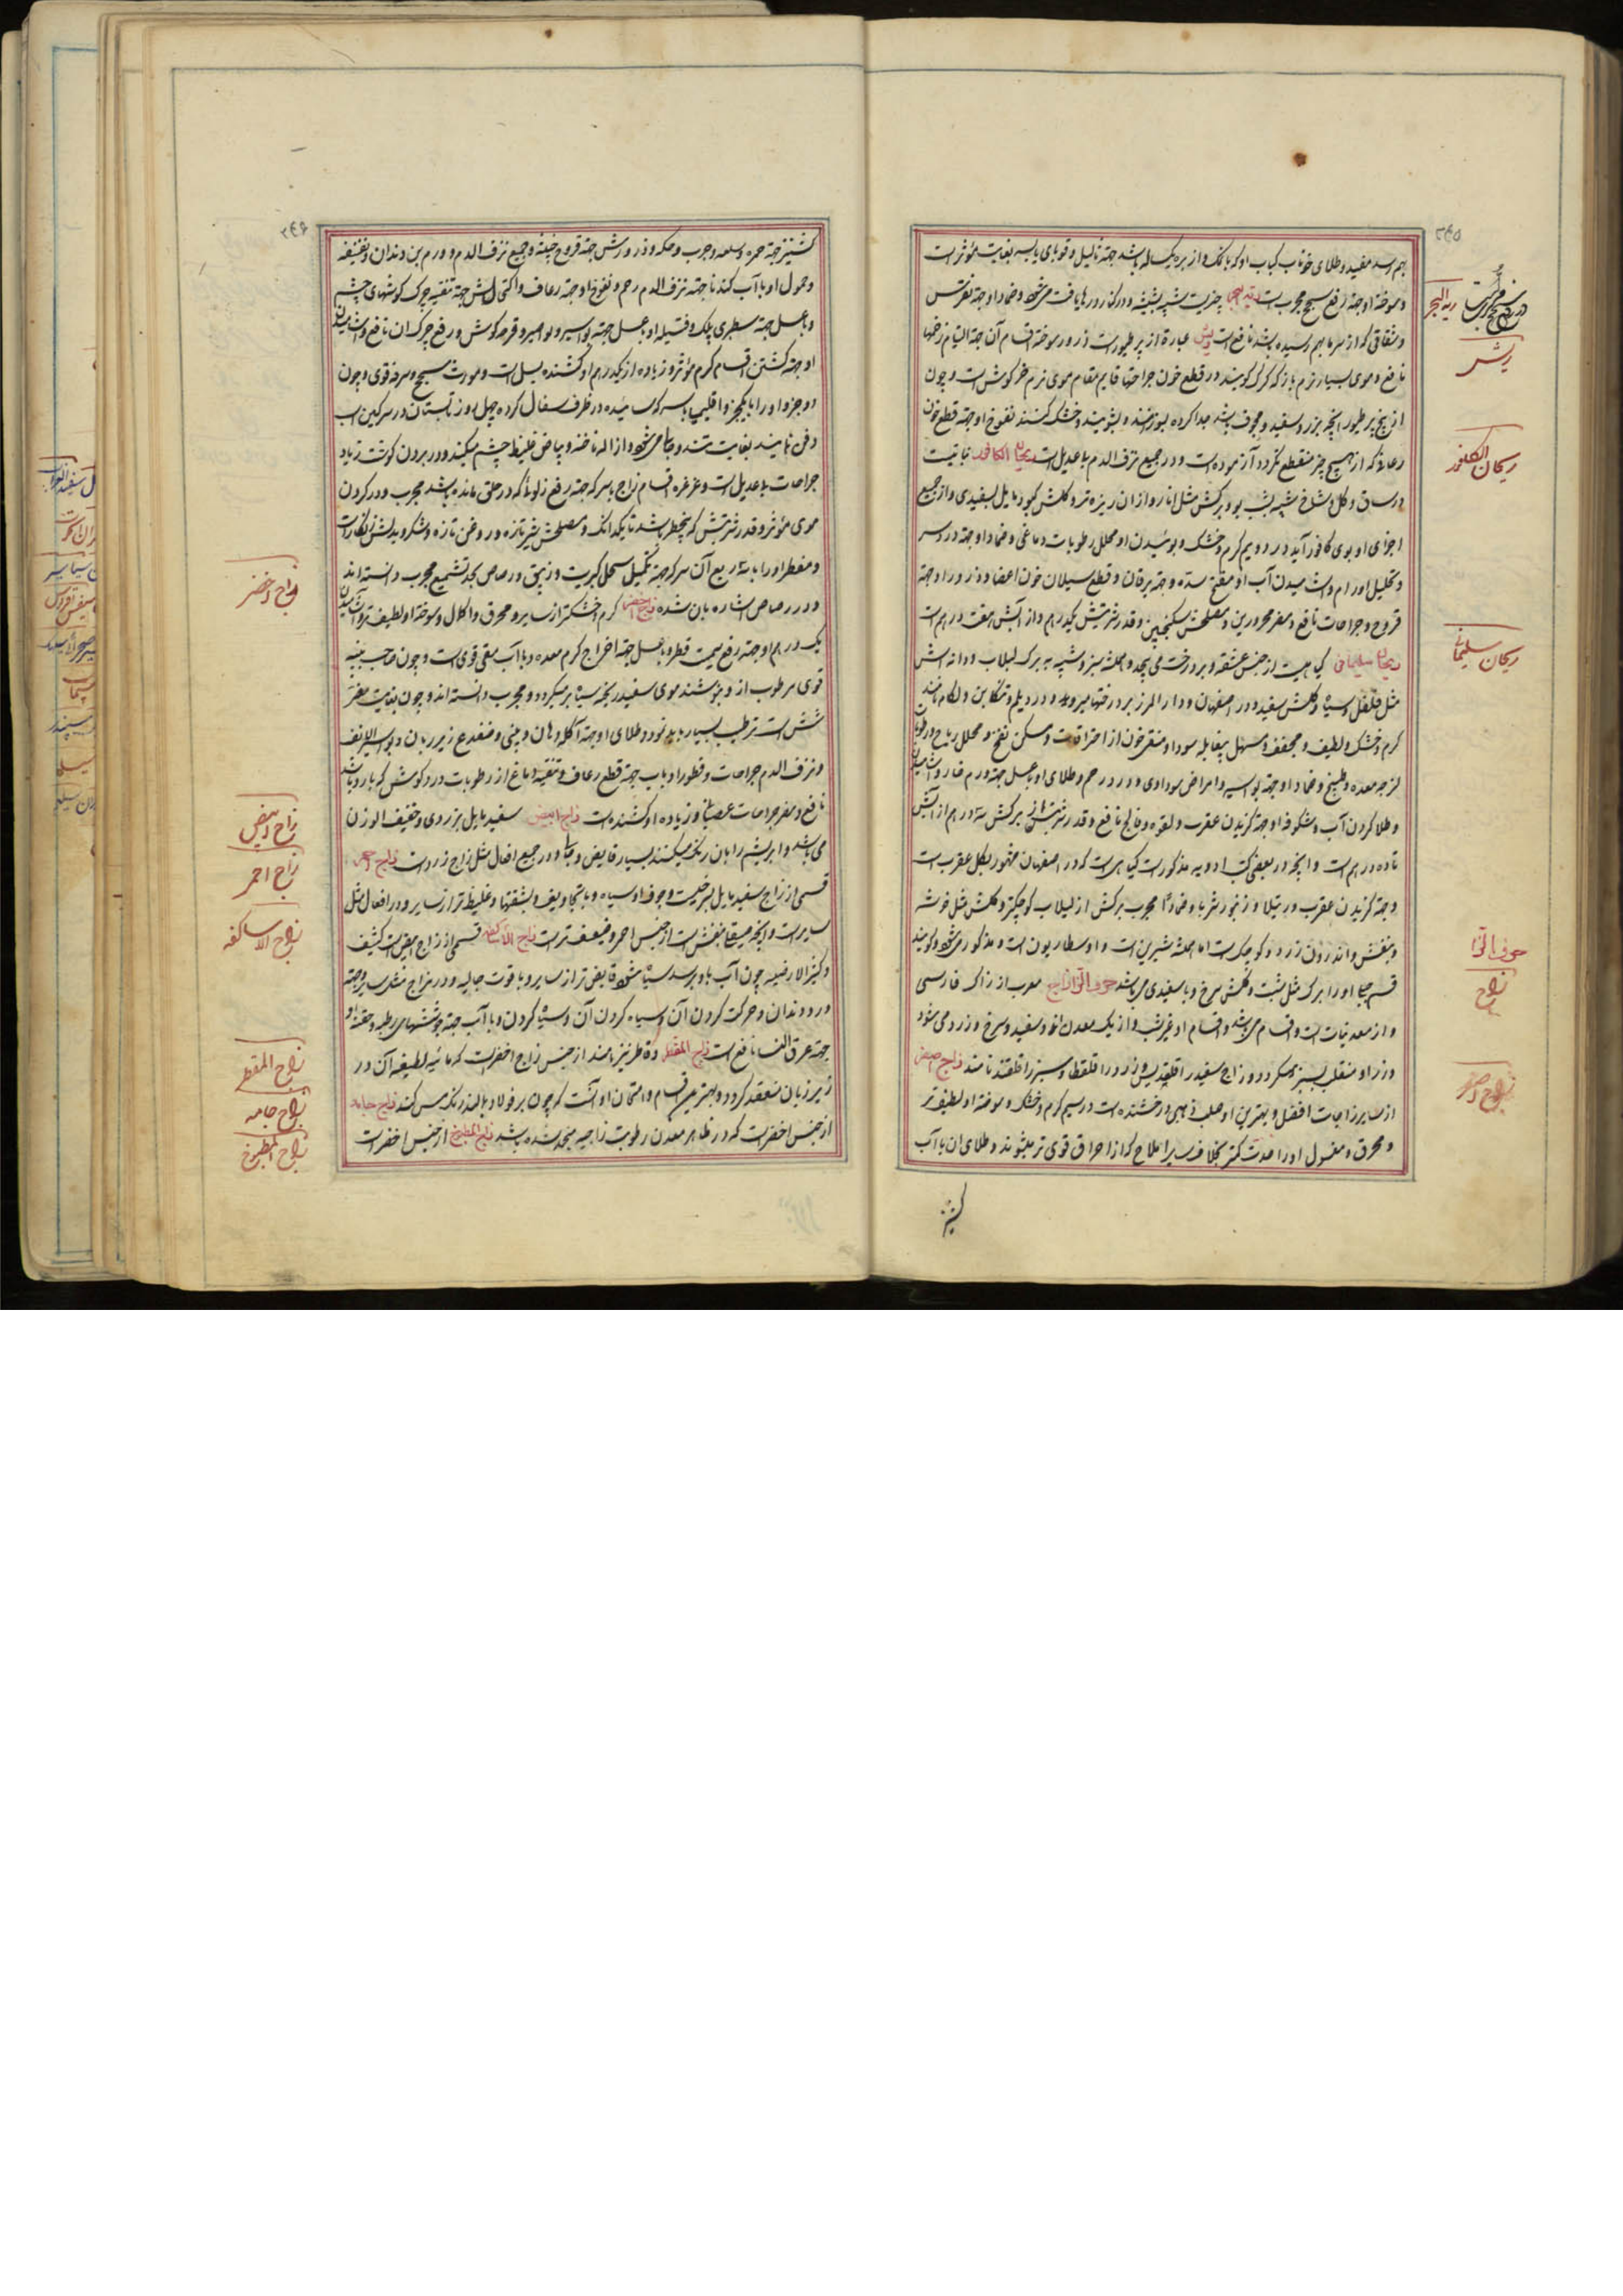 بهم رسد مفید و طلای خوناب کباب او که با نمک و از بره یکساله باشد جهة ثآلیل و قوبای یابسه بغایت مؤثر است
و سوخته او جهة رفع سحج مجرب است ریة البحر چیزیست شبیه بشیشه و در کنار دریا یافت میشود و ضماد او جهة نقرس
و شقاقی که از سرما بهم رسیده باشد نافع است ریش عبارة از پر طیور است ذرور سوخته اقسام آن جهة التیام زخمها
نافع و موی بسیار نرم باز که کرک کویند در قطع خون جراحتها قایم مقام موی نرم خرکوش است و چون
از بیخ پر طیور آنچه بزرک و سفید و مجوف باشد جدا کرده بسوزانند و بشویند و خشک کنند نفوخ او جهة قطع خون
رعاف که از هیچ چیز منقطع نکردد آزموده است و در جمیع نزف الدم با عدیل است ریحان الکافور نباتیست
در ساق و کل و شاخ شبیه بشب بو و برکش مثل انار و از آن ریزه تر و کلش کبود مایل بسفیدی و از جمیع
اجزای او بوی کافور آید در دویم کرم و خشک و بوئیدن او محلل رطوبات دماغی و ضماد او جهة درد سر
و تحلیل اورام و آشامیدن آب او مفتح سدّه و جهة یرقان و قطع سیلان خون اعضا و ذرور او جهة
قروح و جراحات نافع و مضر محرورین و مصلحش سکنجبین و قدر شربتش یکدرهم و از آبش هفت درهم است
ریحان سلیمانی کیاهیست از جنس عشقه و بر درخت می پیچد و همیشه سبز و شبیه به برک لبلاب و دانه اش
مثل فلفل و سیاه و کلش سفید و در اصفهان و دار المرز بر درختها میروید و در دیلم و تنکابن ولکام نامند
کرم و خشک و لطیف و مجفف و مسهل بیغایله سودا و منقی خون از احتراقات و مسکن نفخ و محلل ریاح و رطوبات
لزجه معده و طبیخ و ضماد او جهة بواسیر و امراض سوداوی و درد رحم و طلای او با عسل جهة ورم حار و آشامیدن
و طلا کردن آب و شکوفه او جهة کزیدن عقرب و لقوه و فالج نافع و قدر شربتش از برکش سه درهم از آبش
تا ده درهم است و آنچه در بعضی کتب ادویه مذکور است کیاهیست که در اصفهان مشهور بکل عقرب است
و جهة کزیدن عقرب و رتیلا و زنبور شربا و ضمادا مجرب برکش از لبلاب کوچکتر و کلش مثل خوشه
و بنفش و اندرون زرد و کوچک است اما همیشه شیرین است و اوسطاریون است و مذکور میشود و کویند
قسم جبلی او را برک مثل شبت و کلش سرخ و با سفیدی میباشد حرف الزا زاج معرب از زاک فارسی
و از معدنیات است و اقسام میباشد و اقسام او غیر شب و از یک معدن اند و سفید و سرخ و زرد می شود
و زرد او منقلب بسبز میکردد و زاج سفید را قلقدیس و زرد را قلقطار و سبز را قلقند نامند زاج اصفر
از سایر زاجات افضل و بهترین او صلب ذهبی درخشنده است در سیم کرم و خشک و سوخته او لطیف تر
و محرق و مغسول او را حدت کمتر بخلاف سایر املاح که از احراق قوی تر میشوند و طلای آن با آب
کشنیز
۲۴۵
ریة البحر
ریش
ریحان الکافور
ریحان سلیمانی
حرف الزا
زاج
زاج اصفر
کشنیز جهة حمره و سعفه و جرب و حکه و ذرورش جهة قروح خبیثه و جمیع نزف الدم و ورم بن دندان و نغنغه
و حمول او با آب کندنا جهة نزف الدم رحم و نفوخ او جهة رعاف و اکتحالش جهة تنقیه چرک کوشهای چشم
و با عسل جهة سطبری پلک و فتیله او با عسل جهة بواسیر و نواسیر و قرحه کوش و رفع چرک آن نافع و آشامیدن
او جهة کشتن اقسام کرم مؤثر و زیاده از یکدرهم او کشنده بسل است و مورث سحج و سرفه قوی و چون
دو جزو او را با یکجزو اقلیمیا با سرکه سائیده در ظرف سفال کرده چهل روز تابستان در سرکین اسب
دفن نمایند بغایت تند و حاد میشود و ازاله ناخنه و بیاض غلیظ چشم میکند و در بردن کوشت زیاد
جراحات با عدیل است و غرغره اقسام زاج با سرکه جهة رفع زلو که در حلق مانده باشد مجرب و در کردن
موی مؤثر و قدر شربتش که بیخطر باشد تا یکدانک و مصلحش شیر تازه و روغن تازه و شکر و بدلش زنکار است
و مقطر او را با سه ربع آن سرکه جهة تکمیل سحل کبریت و زیبق و رصاص بجد تشمیع مجرب دانسته اند
و در رصاص اشاره بآن شده زاج اخضر کرم و خشکتر از سایر و محرق و اکال و سوخته او لطیف تر و آشامیدن
یک درهم او جهة رفع سمیت فطر و با عسل جهة اخراج کرم معده و با آب مقی قوی است و چون صاحب بنیه
قوی مرطوب از و بنوشند موی سفید ریخته سیاه بر میکردد و مجرب دانسته اند و چون بغایت مضر
شش است ترطیب بسیار باید نمود و طلای او جهة آکله دهان و بینی و ضفدع زیر زبان و بواسیر انف
و نزف الدم جراحات و قطور او با آب جهة قطع رعاف و تنقیه دماغ از رطوبات و درد کوش که بارد باشد
نافع و مضر جراحات عصبانی و زیاده او کشنده است زاج ابیض سفید مایل بزردی و خفیف الوزن
می باشد و ابریشم را بآن رنک میکنند بسیار قابض و حاد و در جمیع افعال مثل زاج زرد است زاج احمر
قسمی از زاج سفید مایل بسرخیست و جوف او سیاه و با تجاویف و بشقبها و غلیظ تر از سایر و در افعال مثل
سایر است و آنچه میقله بنفش است از جنس احمر و ضعیف تر است زاج الاساکفه قسمی از زاج ابیض است کثیف
و کثیر الارضیه چون آب باو برسد سیاه شود قابض تر از سایر و با قوت جالیه و در مزاج مثل سایر و جهة
درد دندان و حرکت کردن آن و سیاه کردن آن و سیاه کردن و با آب جهة جوششهای رطبه و حقنه او
جهة عرق النسا نافع است زاج المقطر و قاطر نیز نامند از جنس زاج اخضر است که مائیه لطیفه آن در
زیر زبان منعقد کردد و بهترین اقسام و امتحان او آنست که چون بر فولاد بمالند رنک مس کند زاج جامد
از جنس اخضر است که در ظاهر معدن رطوبت زاجیه منجمد شده باشد زاج المطبوخ از جنس اخضر است
۲۴۶
زاج اخضر
زاج ابیض
زاج احمر
زاج الاساکفه
زاج المقطر
زاج جامد
زاج المطبوخ